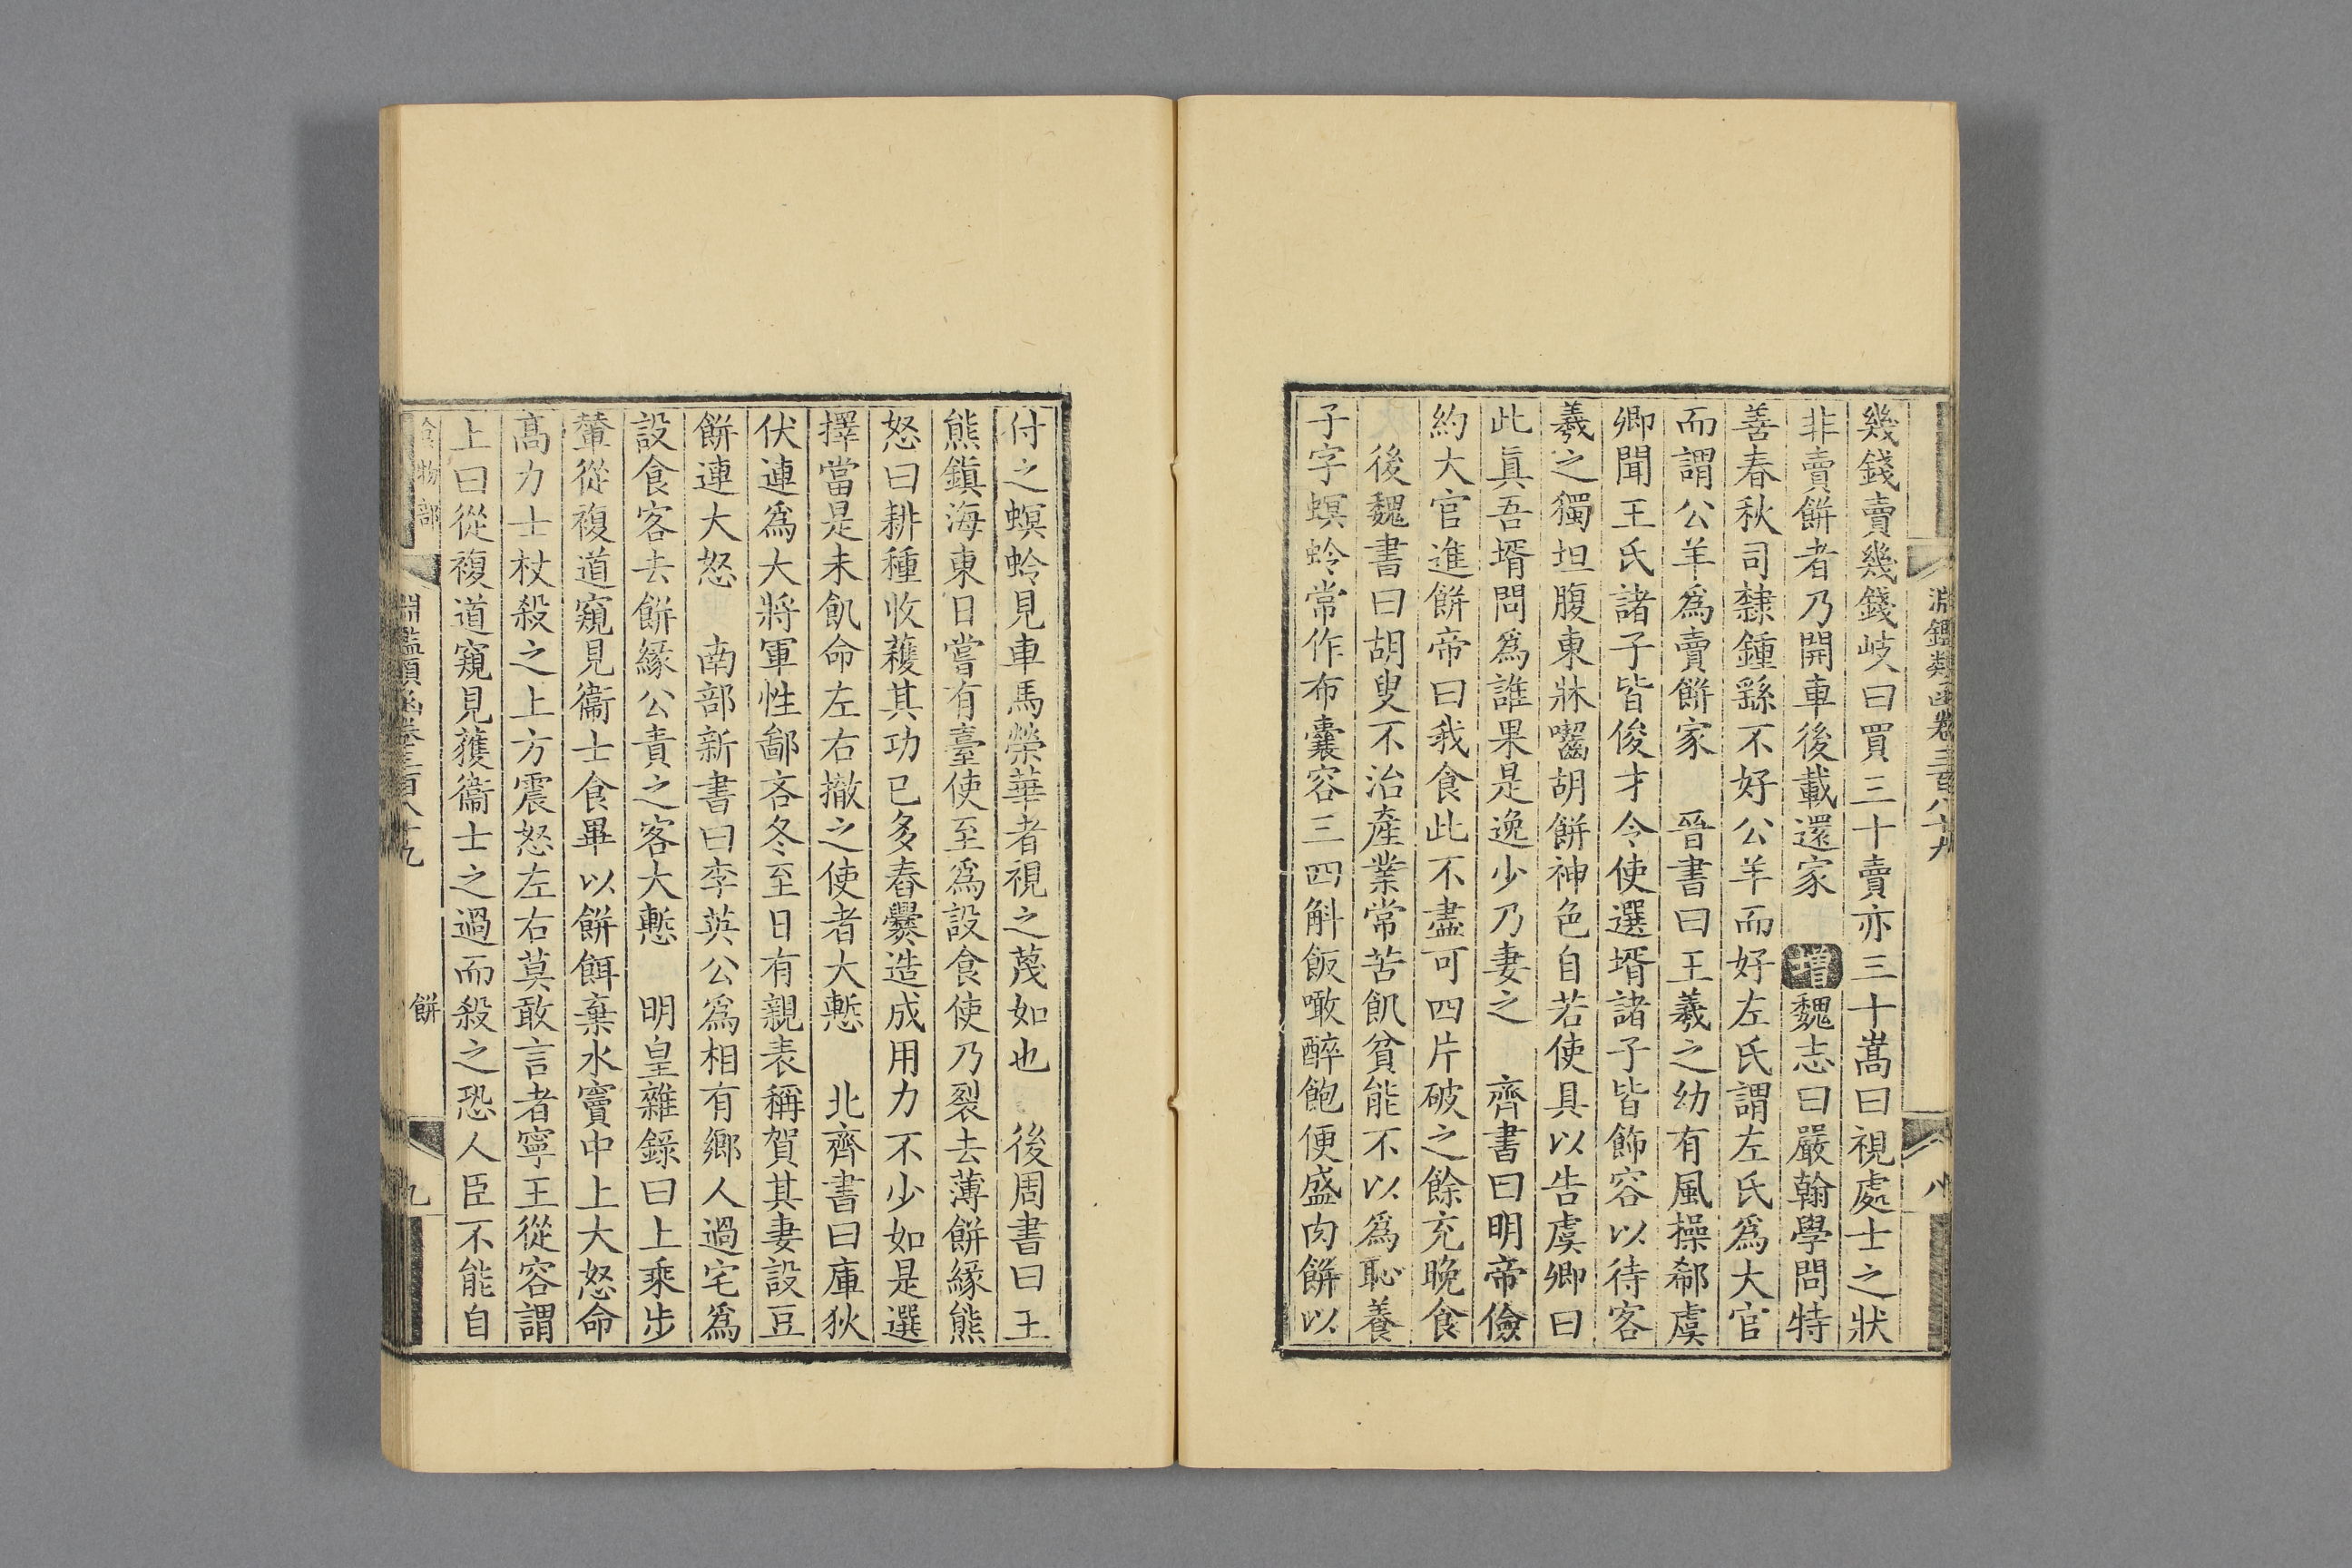 淵鑑類函卷三百八十九
八
幾錢賣幾錢岐曰買三十賣亦三十嵩曰視處士之狀
非賣餅者乃開車後載還家　增魏志曰嚴翰學問特
善春秋司隸鍾繇不好公羊而好左氏謂左氏為大官
而謂公羊為賣餅家　晉書曰王羲之幼有風操郗虞
卿聞王氏諸子皆俊才令使選壻諸子皆飾容以待客
羲之獨坦腹東牀囓胡餅神色自若使具以告虞卿曰
此眞吾壻問為誰果是逸少乃妻之　齊書曰明帝儉
約大官進餅帝曰我食此不盡可四片破之餘充晚食
後魏書曰胡叟不治產業常苦飢貧能不以為恥養
子字螟蛉常作布囊容三四斛飯噉醉飽便盛肉餅以
付之螟蛉見車馬榮華者視之蔑如也　後周書曰王
熊鎮海東日嘗有臺使至為設食使乃裂去薄餅緣熊
怒曰耕種收穫其功已多舂爨造成用力不少如是選
擇當是未飢命左右撤之使者大慙　北齊書曰庫狄
伏連為大將軍性鄙吝冬至日有親表稱賀其妻設豆
餅連大怒　南部新書曰李英公為相有鄉人過宅為
設食客去餅緣公責之客大慙　明皇雜錄曰上乘步
輦從複道窺見衞士食畢以餅餌棄水竇中上大怒命
高力士杖殺之上方震怒左右莫敢言者寧王從容謂
上曰從複道窺見獲衞士之過而殺之恐人臣不能自
食物部
淵鑑類函卷三百八十九
餅
九